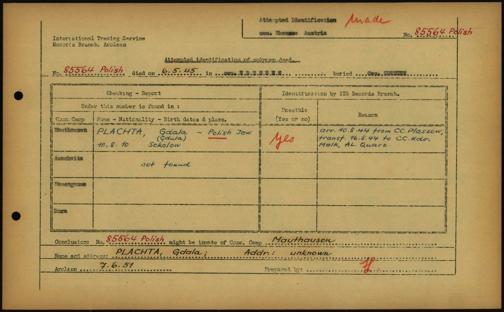 Attempted Identification Made
cem. Ebensee Austria
International Tracing Service
Records Branch, Arolsen
No. 85564 Polish
Attempted identification of unknown dead.
No. 85564 Polish died on 6.5.45 in cem. EBENSEE buried Cem. EBENSEE
Checking - Report
Identification by ITS Records Branch.
Under this number is found in :
Possible
(Yes or no)
Reason
Conc. Camp
Name - Nationality - Birth dates & place.
Mauthausen
PLACHTA, Gdala - Polish Jew
(Gdula)
10.8.10 Sokolow
Yes
arr. 10.8.44 from CC Plaszow,
transf. 16.8.44 to CC. Kdo.
Melk, AL. Quarz
Auschwitz
not found
Buchenwald
Dora
Conclusion: No. 85564 Polish might be inmate of Conc. Camp Mauthausen
Name and address: PLACHTA, Gdala; Addr: unknown
Arolsen 7.6.51
Prepared by: